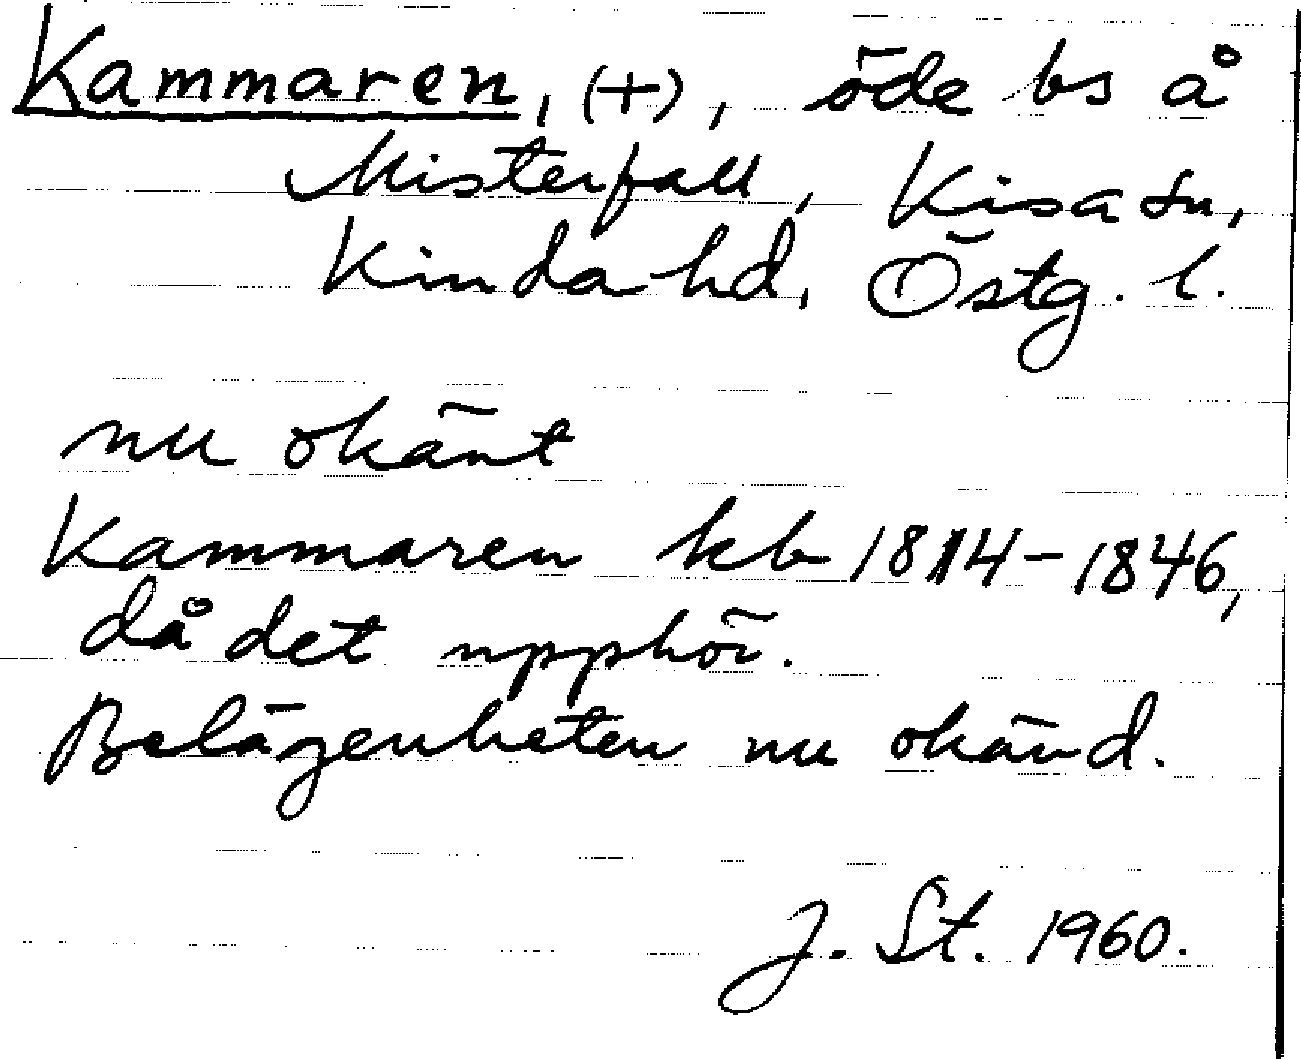 Kammaren, (+), öde bs å
Misterfall, Kisa sn,
Kinda hd, Östg. l.
nu okänt
Kammaren kb 1814-1846,
då det upphör.
Belägenheten nu okänd.
J. St. 1960.